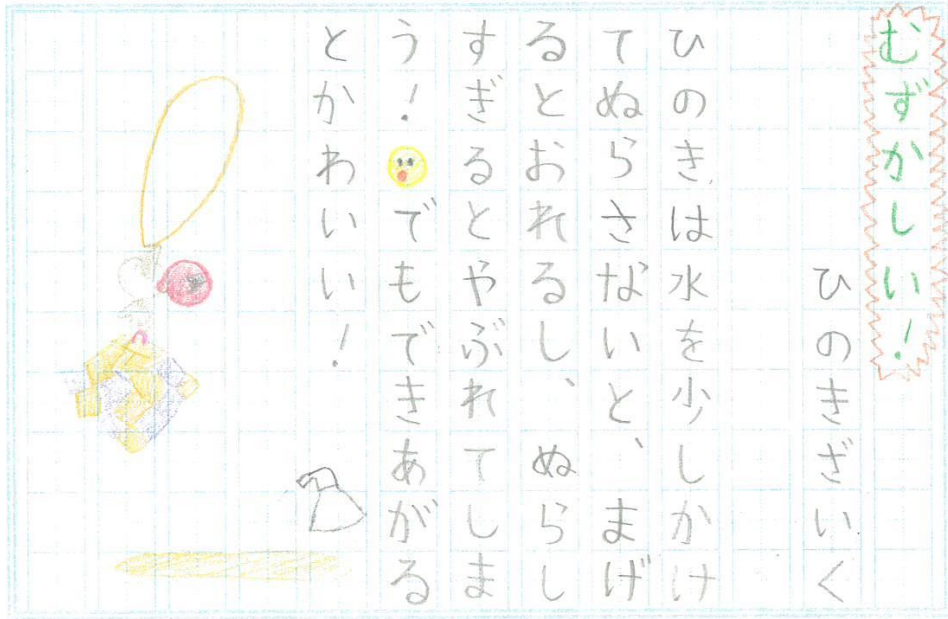 むずかしい!
ひのきざいく
ひのきは水を少しかけ
てぬらさないと、まげ
るとおれるし、ぬらし
すぎるとやぶれてしま
う!でもできあがる
とかわいい!